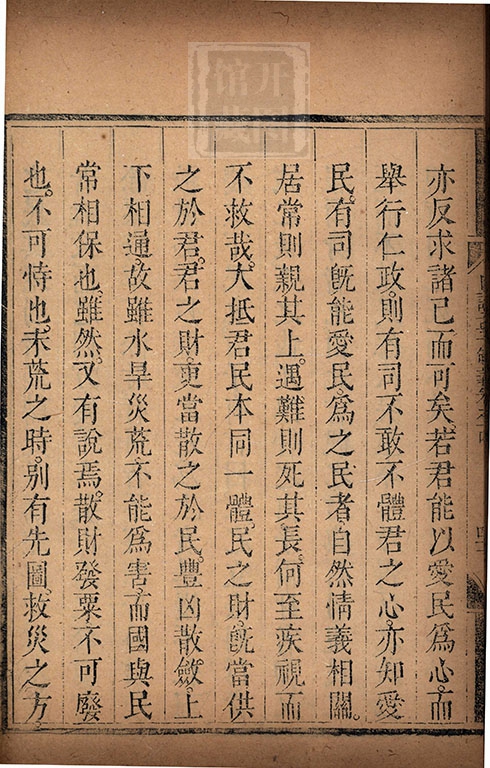 亦反求諸己而可矣若君能以愛民爲心而
舉行仁政則有司不敢不體君之心亦知愛
民有司旣能愛民爲之民者自然情義相關
居常則親其上遇難則死其長何至疾視而
不救哉大抵君民本同一體民之財旣當供
之於君君之財更當散之於民豐凶散斂上
下相通故雖水旱災荒不能爲害而國與民
常相保也雖然又有說焉散財發粟不可廢
也不可恃也未荒之時别有先圖救災之方